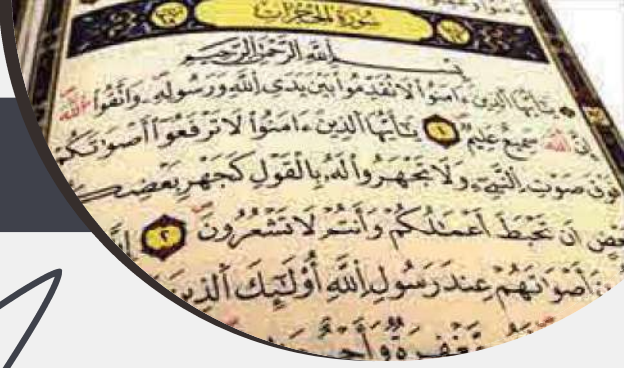 سُورَةُ الحُجُرَاتِ
بِسْمِ ٱللَّهِ ٱلرَّحْمَٰنِ ٱلرَّحِيمِ
يَٰٓأَيُّهَا ٱلَّذِينَ ءَامَنُوا۟ لَا تُقَدِّمُوا۟ بَيْنَ يَدَىِ ٱللَّهِ وَرَسُولِهِۦ وَٱتَّقُوا۟ ٱللَّهَ
إِنَّ ٱللَّهَ سَمِيعٌ عَلِيمٌ ١ يَٰٓأَيُّهَا ٱلَّذِينَ ءَامَنُوا۟ لَا تَرْفَعُوٓا۟ أَصْوَٰتَكُمْ
فَوْقَ صَوْتِ ٱلنَّبِىِّ وَلَا تَجْهَرُوا۟ لَهُۥ بِٱلْقَوْلِ كَجَهْرِ بَعْضِكُ
أَن تَحْبَطَ أَعْمَٰلُكُمْ وَأَنتُمْ لَا تَشْعُرُونَ ٢
أَصْوَٰتَهُمْ عِندَ رَسُولِ ٱللَّهِ أُو۟لَٰٓئِكَ ٱلَّذِينَ
مَّغْفِرَةٌ وَأَجْرٌ